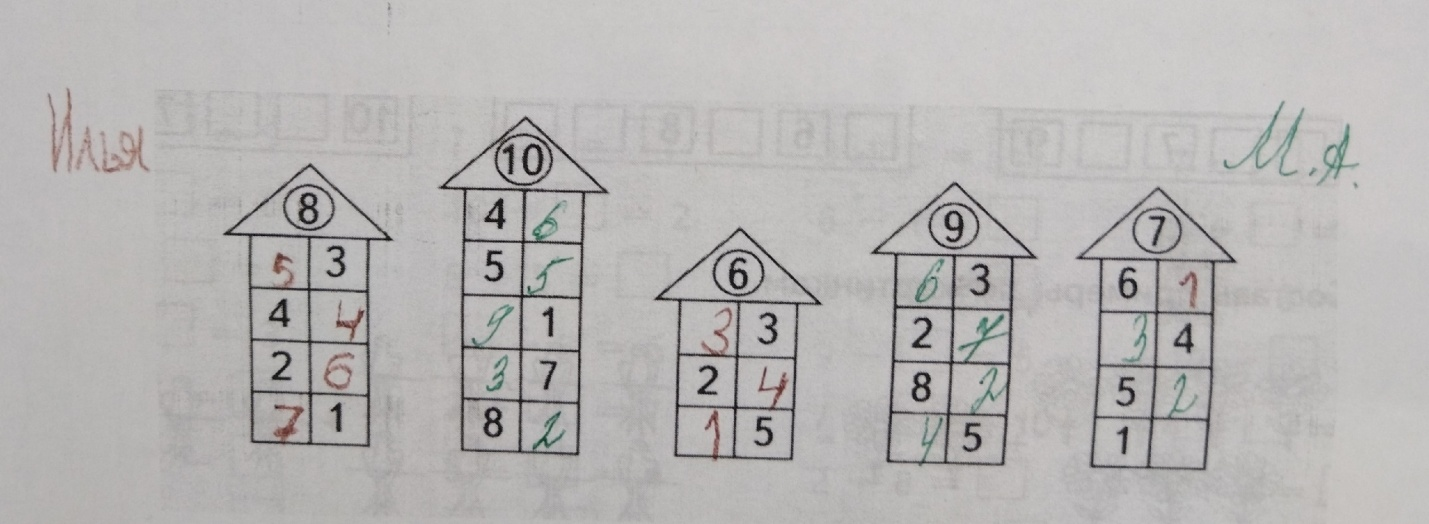 Илья
М.А.
8
5 3
4 4
2 6
7 1
10
4 6
5 5
9 1
3 7
8 2
6
3 3
2 4
1 5
9
6 3
2 7
8 2
4 5
7
6 1
3 4
5 2
1